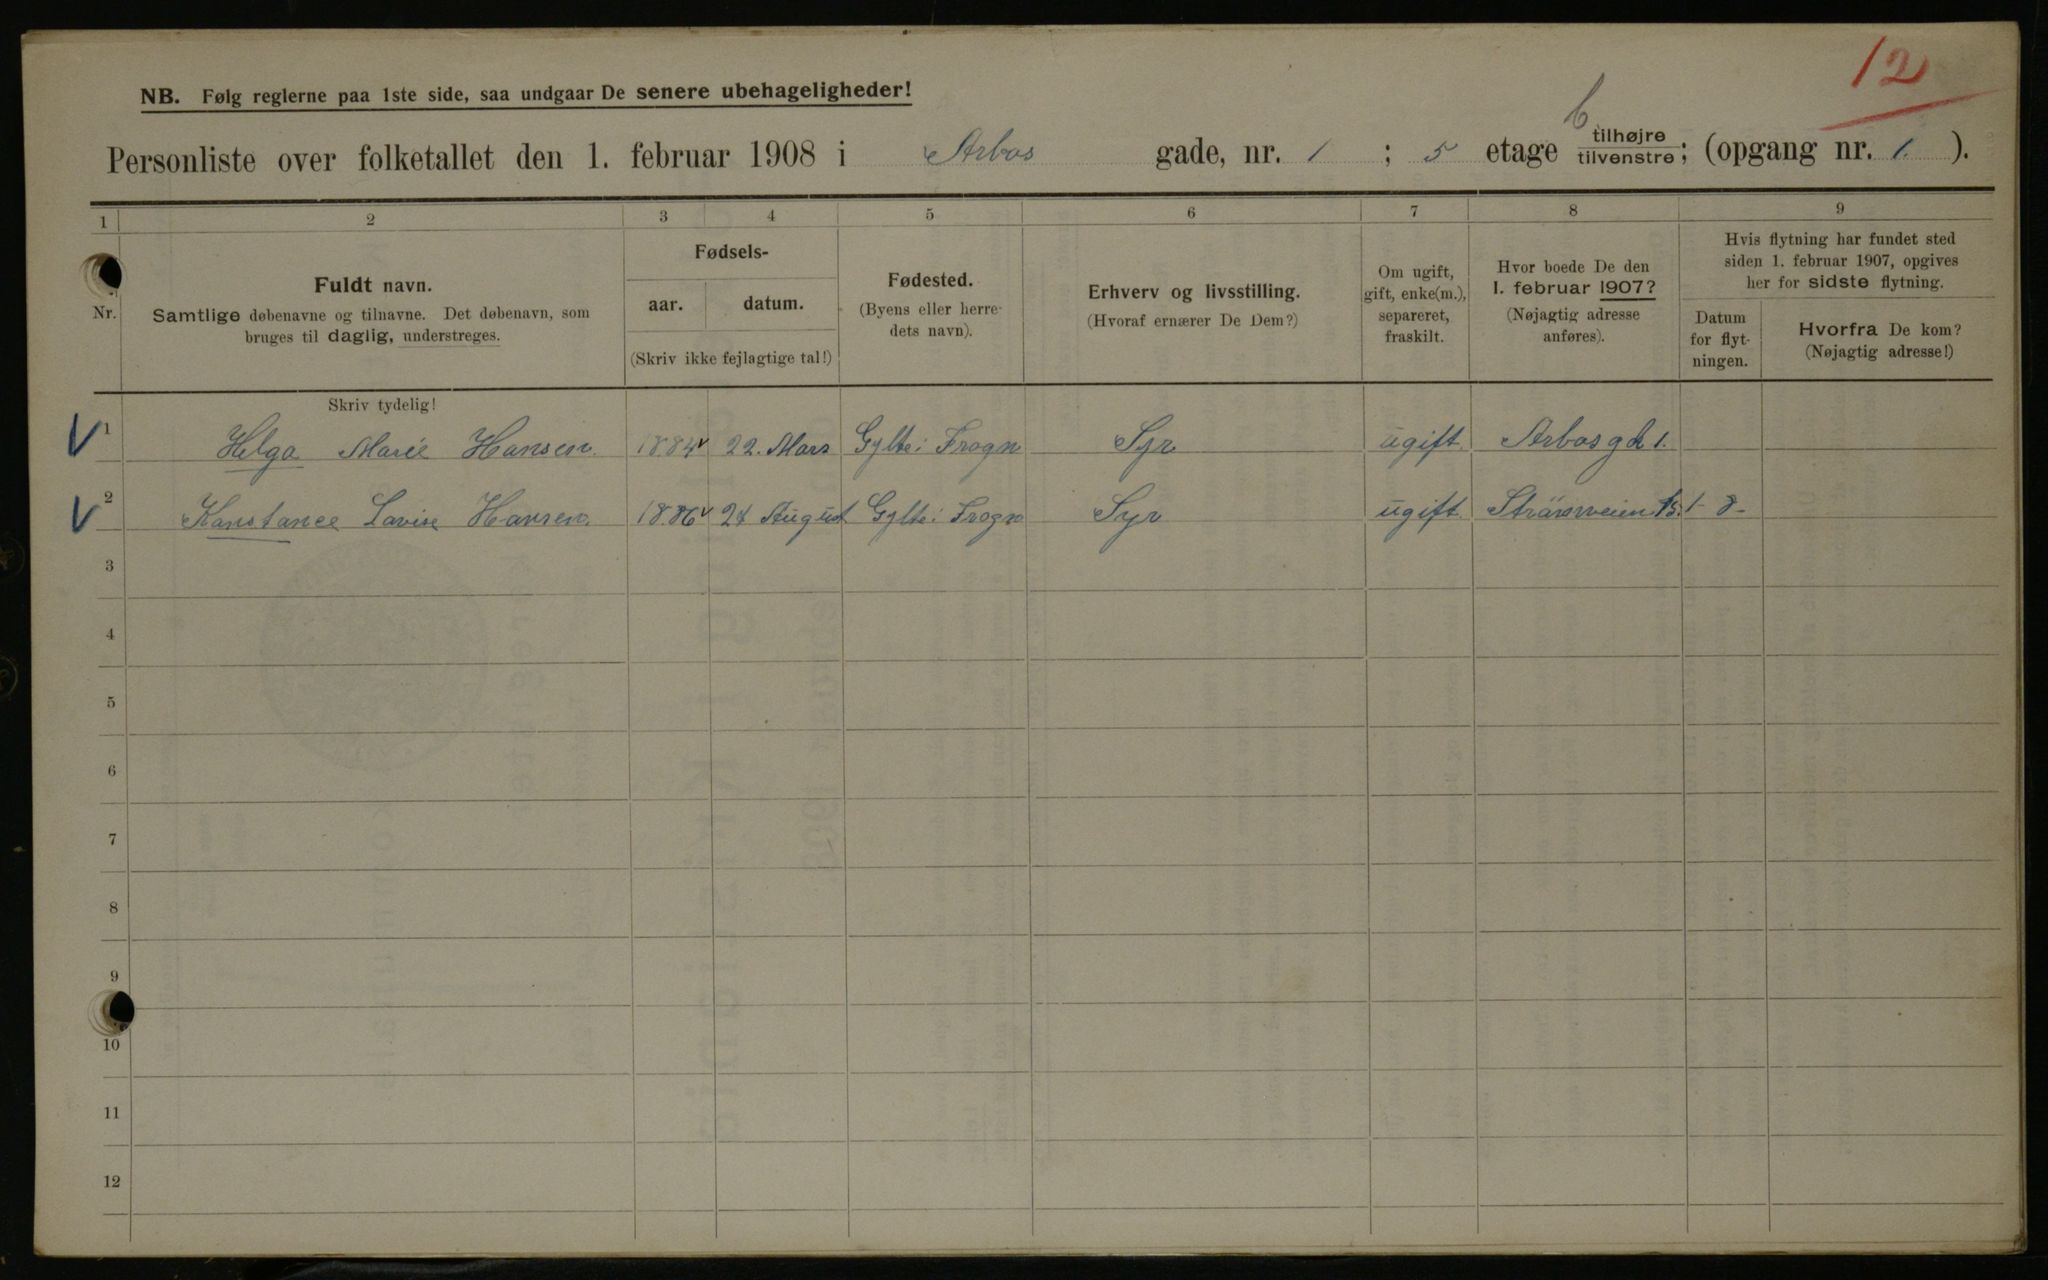 12
NB. Følg reglerne paa 1ste side, saa undgaar De senere ubehageligheder!
Personliste over folketallet den 1. februar 1908 i Arbos gade, nr. 1 ; 5 etage b tilhøjre tilvenstre; (opgang nr. 1. ).
1 2 3 4 5 6 7 8 9
Nr.
Fuldt navn.
Samtlige døbenavne og tilnavne. Det døbenavn, som
bruges til daglig, understreges.
Fødsels-
aar. datum.
(Skriv ikke fejlagtige tal!)
Fødested.
(Byens eller herre-
dets navn).
Erhverv og livsstilling.
(Hvoraf ernærer De Dem?)
Om ugift,
gift, enke(m.),
separeret,
fraskilt.
Hvor boede De den
1. februar 1907?
(Nøjagtig adresse
anføres).
Hvis flytning har fundet sted
siden 1. februar 1907, opgives
her for sidste flytning.
Datum
for flyt-
ningen.
Hvorfra De kom?
(Nøjagtig adresse!)
Skriv tydelig!
1 Helga Marie Hansen. 1884 22. Mars Gylte i Frogn Syr ugift. Arbosgd 1.
2 Konstance Lovise Hansen. 1886 24 August Gylte i Frogn Syr ugift. 1-8-
3
4
5
6
7
8
9
10
11
12